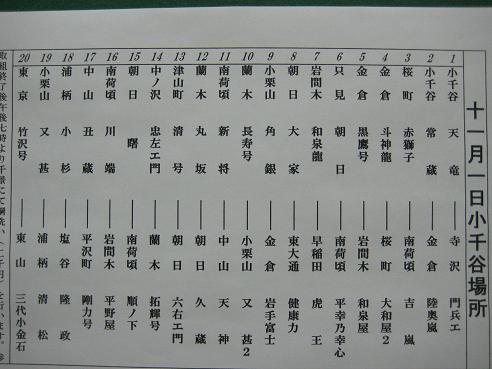 十一月一日小千谷場所
1 小千谷 天竜 ── 寺沢 門兵エ
2 小千谷 常蔵 ── 金倉 陸奥嵐
3 桜町 赤獅子 ── 南荷頃 吉嵐
4 金倉 斗神龍 ── 桜町 大和屋2
5 金倉 黒鷹号 ── 岩間木 和泉屋
6 只見 朝日 ── 南荷頃 平幸乃幸心
7 岩間木 和泉龍 ── 早稲田 虎王
8 朝日 大家 ── 東大通 健康力
9 小栗山 角銀 ── 金倉 岩手富士
10 蘭木 長寿号 ── 小栗山 又甚2
11 南荷頃 新将 ── 中山 天神
12 蘭木 丸坂 ── 朝日 久蔵
13 津山町 清号 ── 朝日 六右エ門
14 中ノ沢 忠左エ門 ── 蘭木 拓輝号
15 朝日 曙 ── 南荷頃 順ノ下
16 南荷頃 川端 ── 岩間木 平野屋
17 中山 丑蔵 ── 平沢町 剛力号
18 浦柄 小杉 ── 塩谷 隆政
19 小栗山 又甚 ── 浦柄 清松
20 東京 竹沢号 ── 東山 三代小金石
取組終了後午後七時より千景にて綱洗い(二千円)を行います。参